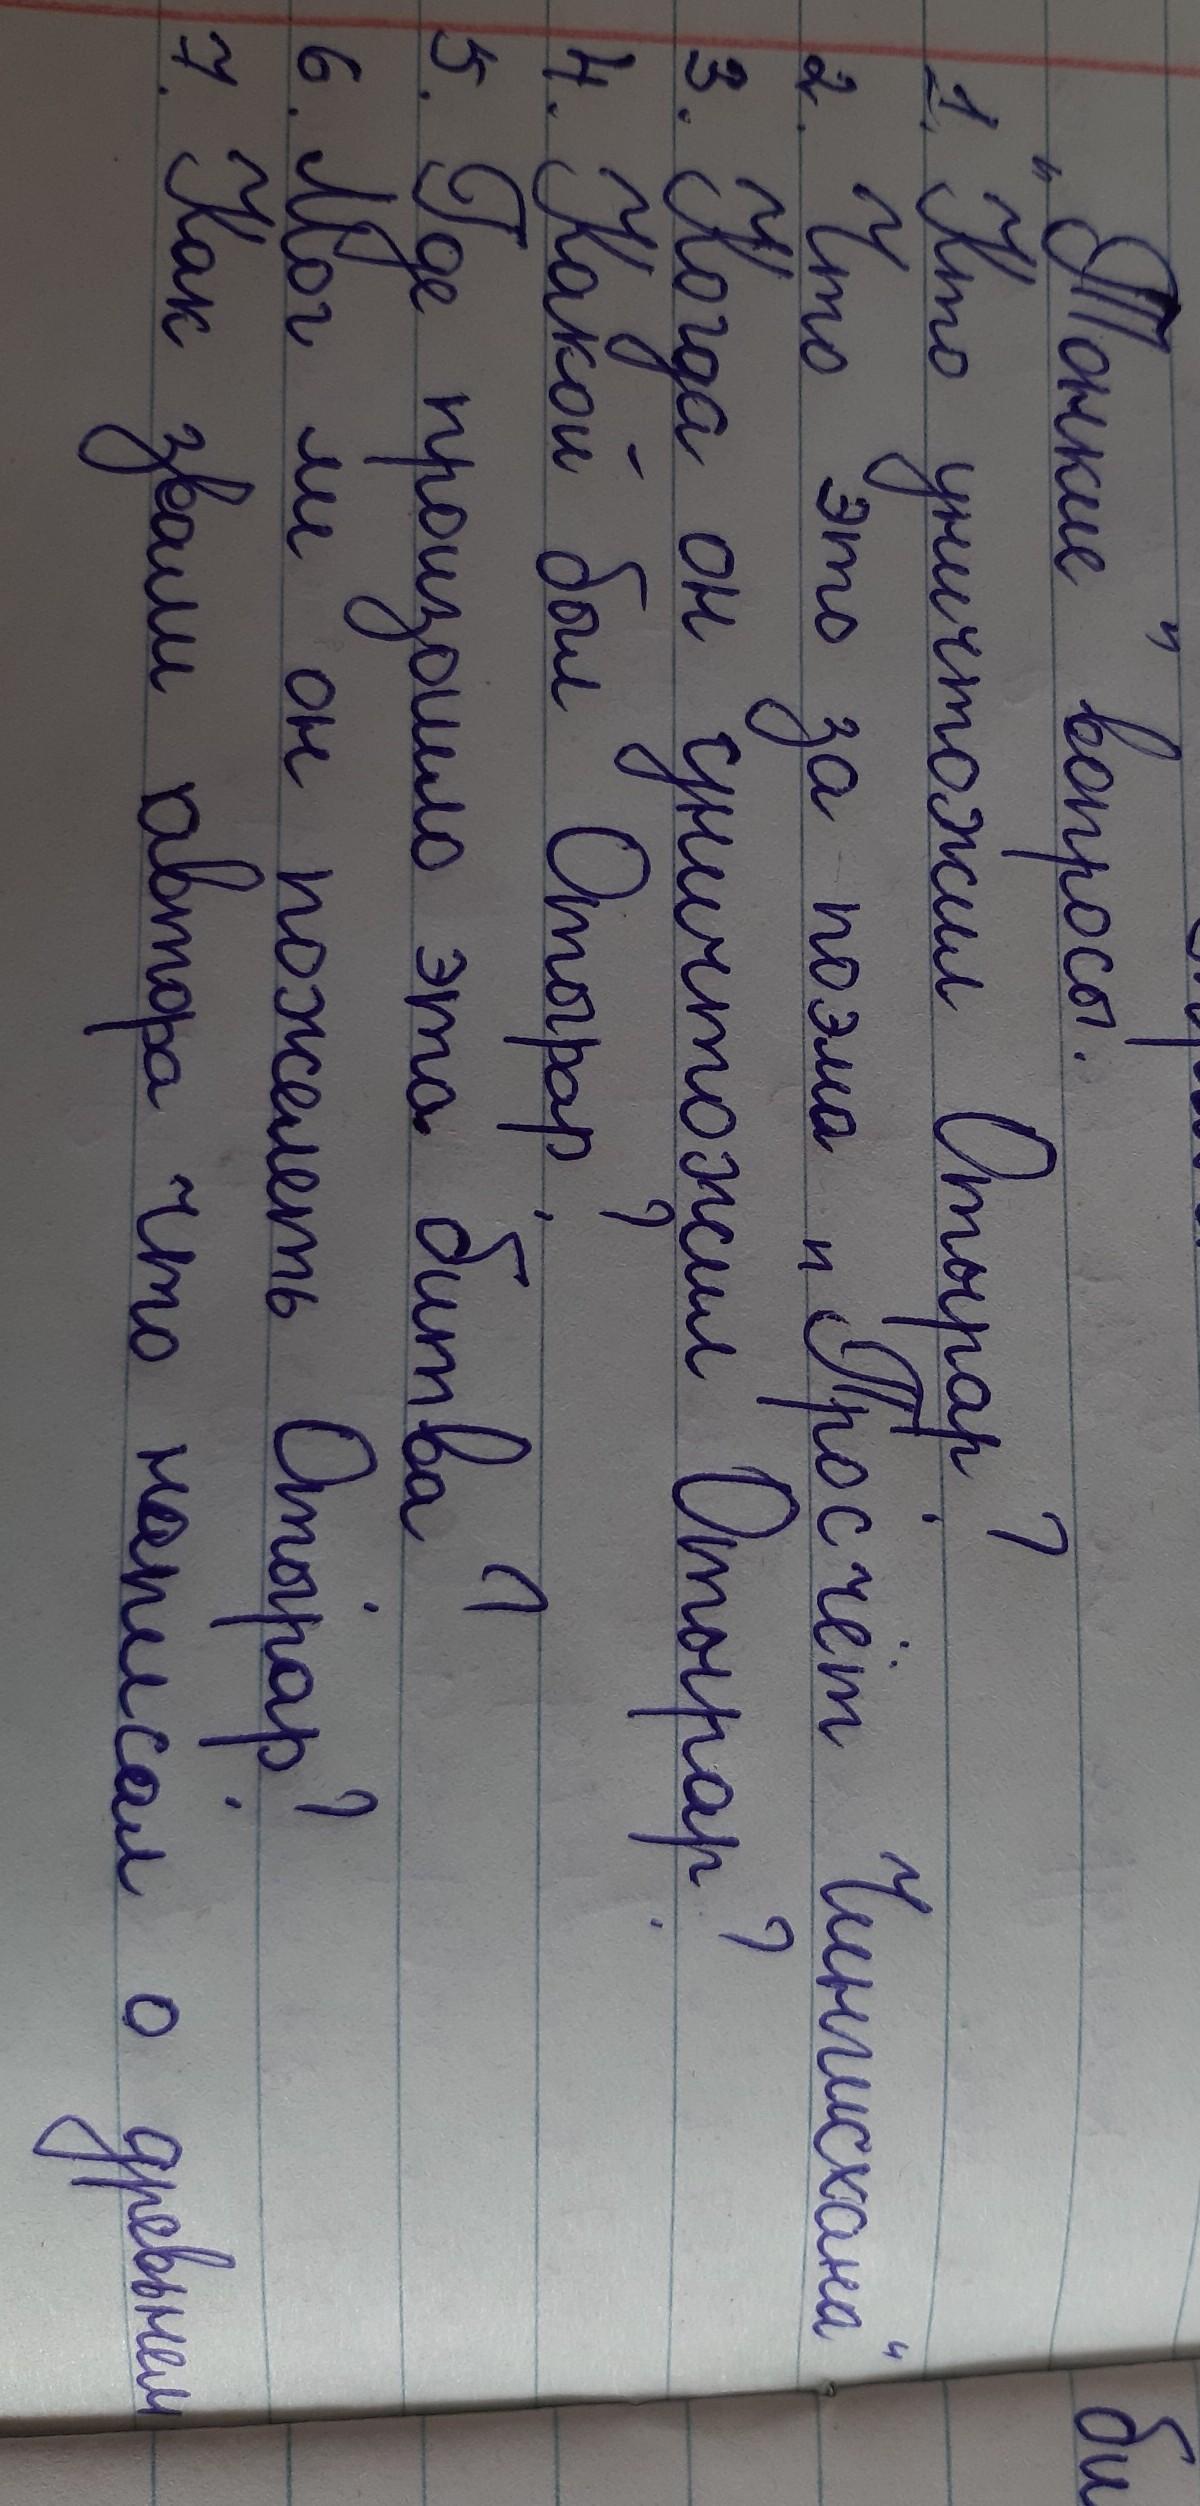 "Тонкие" вопросы.
1. Кто уничтожил Отырар?
2. Что это за поэма "Просчёт Чингисхана"
3. Когда он суничтожил Отырар?
4. Какой был Отырар?
5. Где произошло эта битва?
6. Мог ли он пожелеть Отырар?
7. Как звали автора что написал о древнем
би